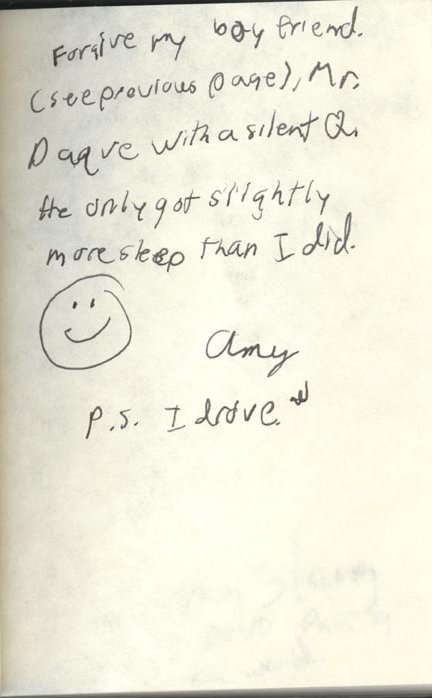 Forgive my boy friend.
(see previous page), Mr.
Daque with a silent Q.
He only got slightly
more sleep than I did.
Amy
P.S. I drove.